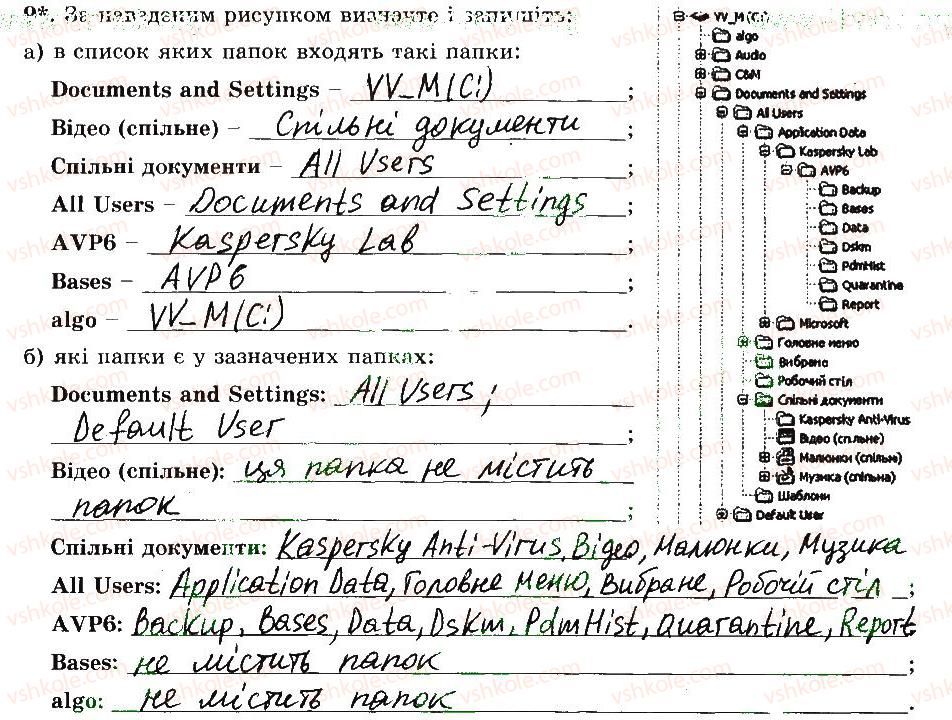 9*. За наведаним рисунком визначте і запишіть:
а) в список яких папок входять такі папки:
Documents and Settings – VV_M(C:) ;
Відео (спільне) – Спільні документи ;
Спільні документи – All Users ;
All Users – Documents and Settings ;
AVP6 – Kaspersky Lab ;
Bases – AVP6 ;
algo – VV_M(C:) .
б) які папки є у зазначених папках:
Documents and Settings: All Users ;
Default User ;
Відео (спільне): ця папка не містить
папок ;
Спільні документи: Kaspersky Anti-Virus, Відео, Малюнки, Музика
All Users: Application Data, Головне меню, Вибране, Робочій стіл ;
AVP6: Backup, Bases, Data, DsKm, PdmHist, Quarantine, Report
Bases: не містить папок ;
algo: не містить папок .
VV_M (C:)
algo
Audio
C&M
Documents and Settings
All Users
Application Data
Kaspersky Lab
AVP6
Backup
Bases
Data
Dskm
PdmHist
Quarantine
Report
Microsoft
Головне меню
Вибране
Робочий стіл
Спільні документи
Kaspersky Anti-Virus
Відео (спільне)
Малюнки (спільні)
Музика (спільна)
Шаблони
Default User